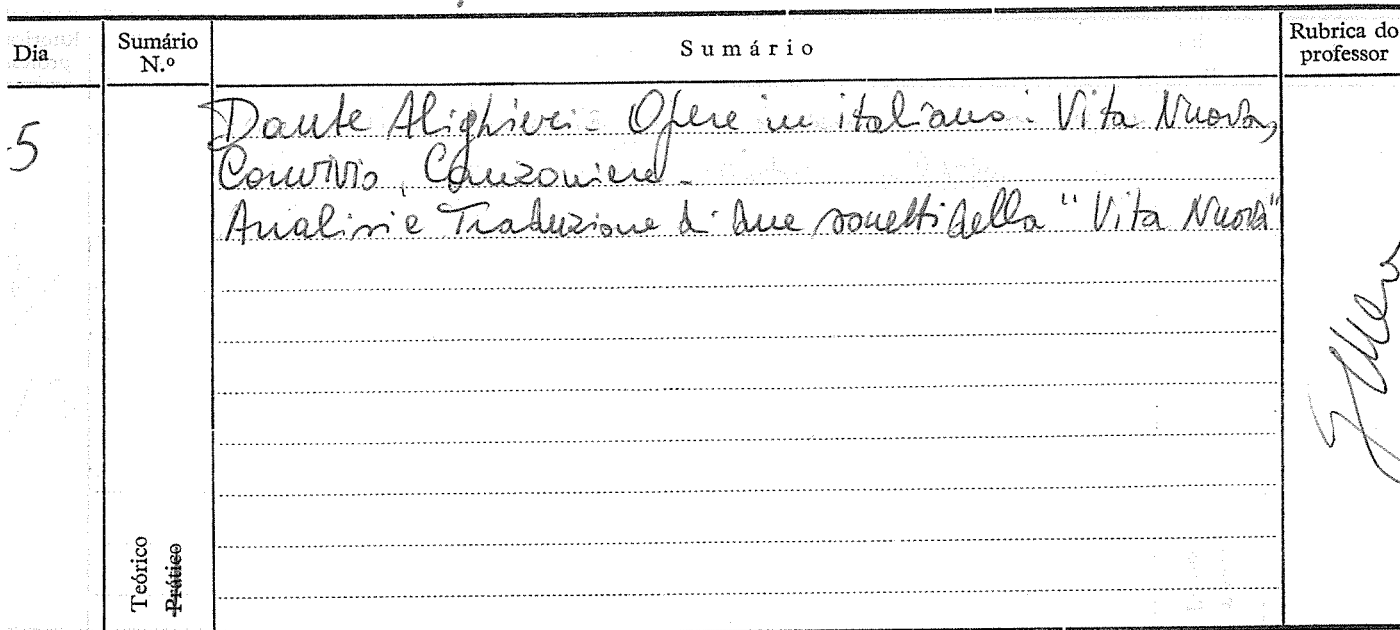 Dia
Sumário N.º
Sumário
Rubrica do professor
5
Dante Alighieri. Opere in italiano: Vita Nuova,
Convivio, Canzoniere.
Analisi e Traduzione di due sonetti della "Vita Nuova"
Teórico
Prático